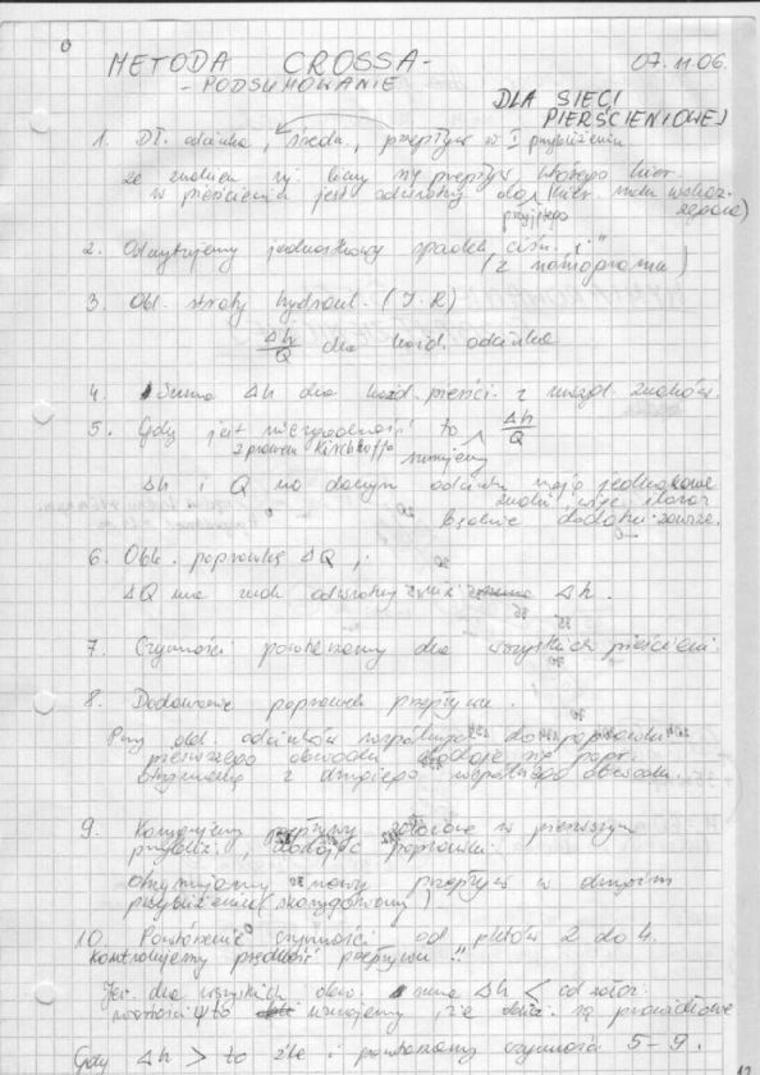 METODA CROSSA - 07.11.06.
- PODSUMOWANIE
DLA SIECI
PIERŚCIENIOWEJ
1. Dł. odcinka, średn., przepływ w I przybliżeniu
ze znakiem się liczy przepływ, którego kier.
w pierścieniu jest odwrotny do kier. ruchu wskaz.
przyjętego zegara)
2. Odczytujemy jednostkowy spadek ciśn. "i"
(z nomogramu)
3. Obl. straty hydraul. (J·R)
Δh/Q dla każd. odcinka
4. Suma Δh dla każd. pierści. z uwzgl. znaków.
5. Gdy jest niezgodność to Δh/Q
z prawem Kirchhoffa sumujemy
Δh i Q na danym odcinku mają jednakowe
znaki więc iloraz
będzie dodatni zawsze.
6. Obl. poprawkę ΔQ,
ΔQ ma znak odwrotny niż Δh.
7. Czynności powtarzamy dla wszystkich pierścieni.
8. Dodawanie poprawek przepływu.
Przy obl. odcinków wspólnych do poprawki
pierwszego obwodu dodaje się popr.
otrzymaną z drugiego wspólnego obwodu.
9. Korygujemy przepływy założone w pierwszym
przybliż., dodając poprawki.
Otrzymujemy nowy przepływ w drugim
przybliżeniu (skorygowany)
10. Powtórzenie czynności od pktów 2 do 4.
Kontrolujemy prędkość przepływu !!
Jeż. dla wszystkich obw. suma Δh < od założ.
wartości to uznajemy, że obl. są prawidłowe
Gdy Δh > to źle i powtarzamy czynności 5-9.
12